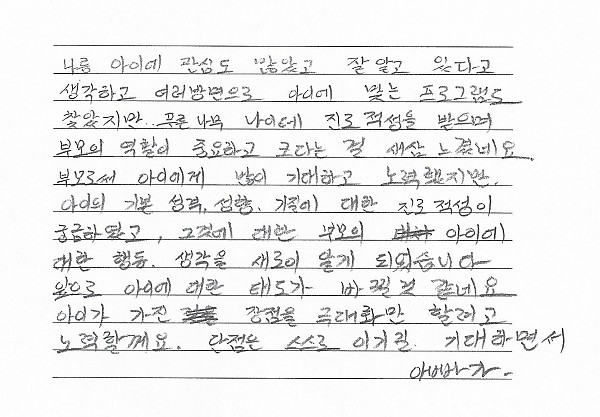 나름 아이에 관심도 많았고 잘 알고 있다고
생각하고 여러방면으로 아이에 맞는 프로그램도
찾았지만... 푸른나무 나이테 진로적성을 받으며
부모의 역할이 중요하고 크다는 걸 새삼 느꼈네요.
부모로써 아이에게 많이 기대하고 노력했지만.
아이의 기본 성격, 성향, 기질에 대한 진로적성이
궁금하였고, 그것에 대한 부모의 아이에
대한 행동, 생각을 새로이 알게 되었습니다
앞으로 아이에 대한 태도가 바뀔것 같네요
아이가 가진 장점을 극대화만 할려고
노력할께요. 단점은 스스로 이기길 기대하면서
아빠가.